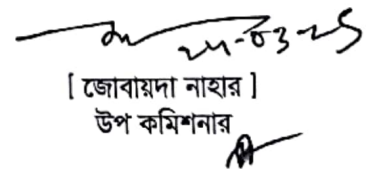 ২৫-০৩-২৫
[ জোবায়দা নাহার ]
উপ কমিশনার